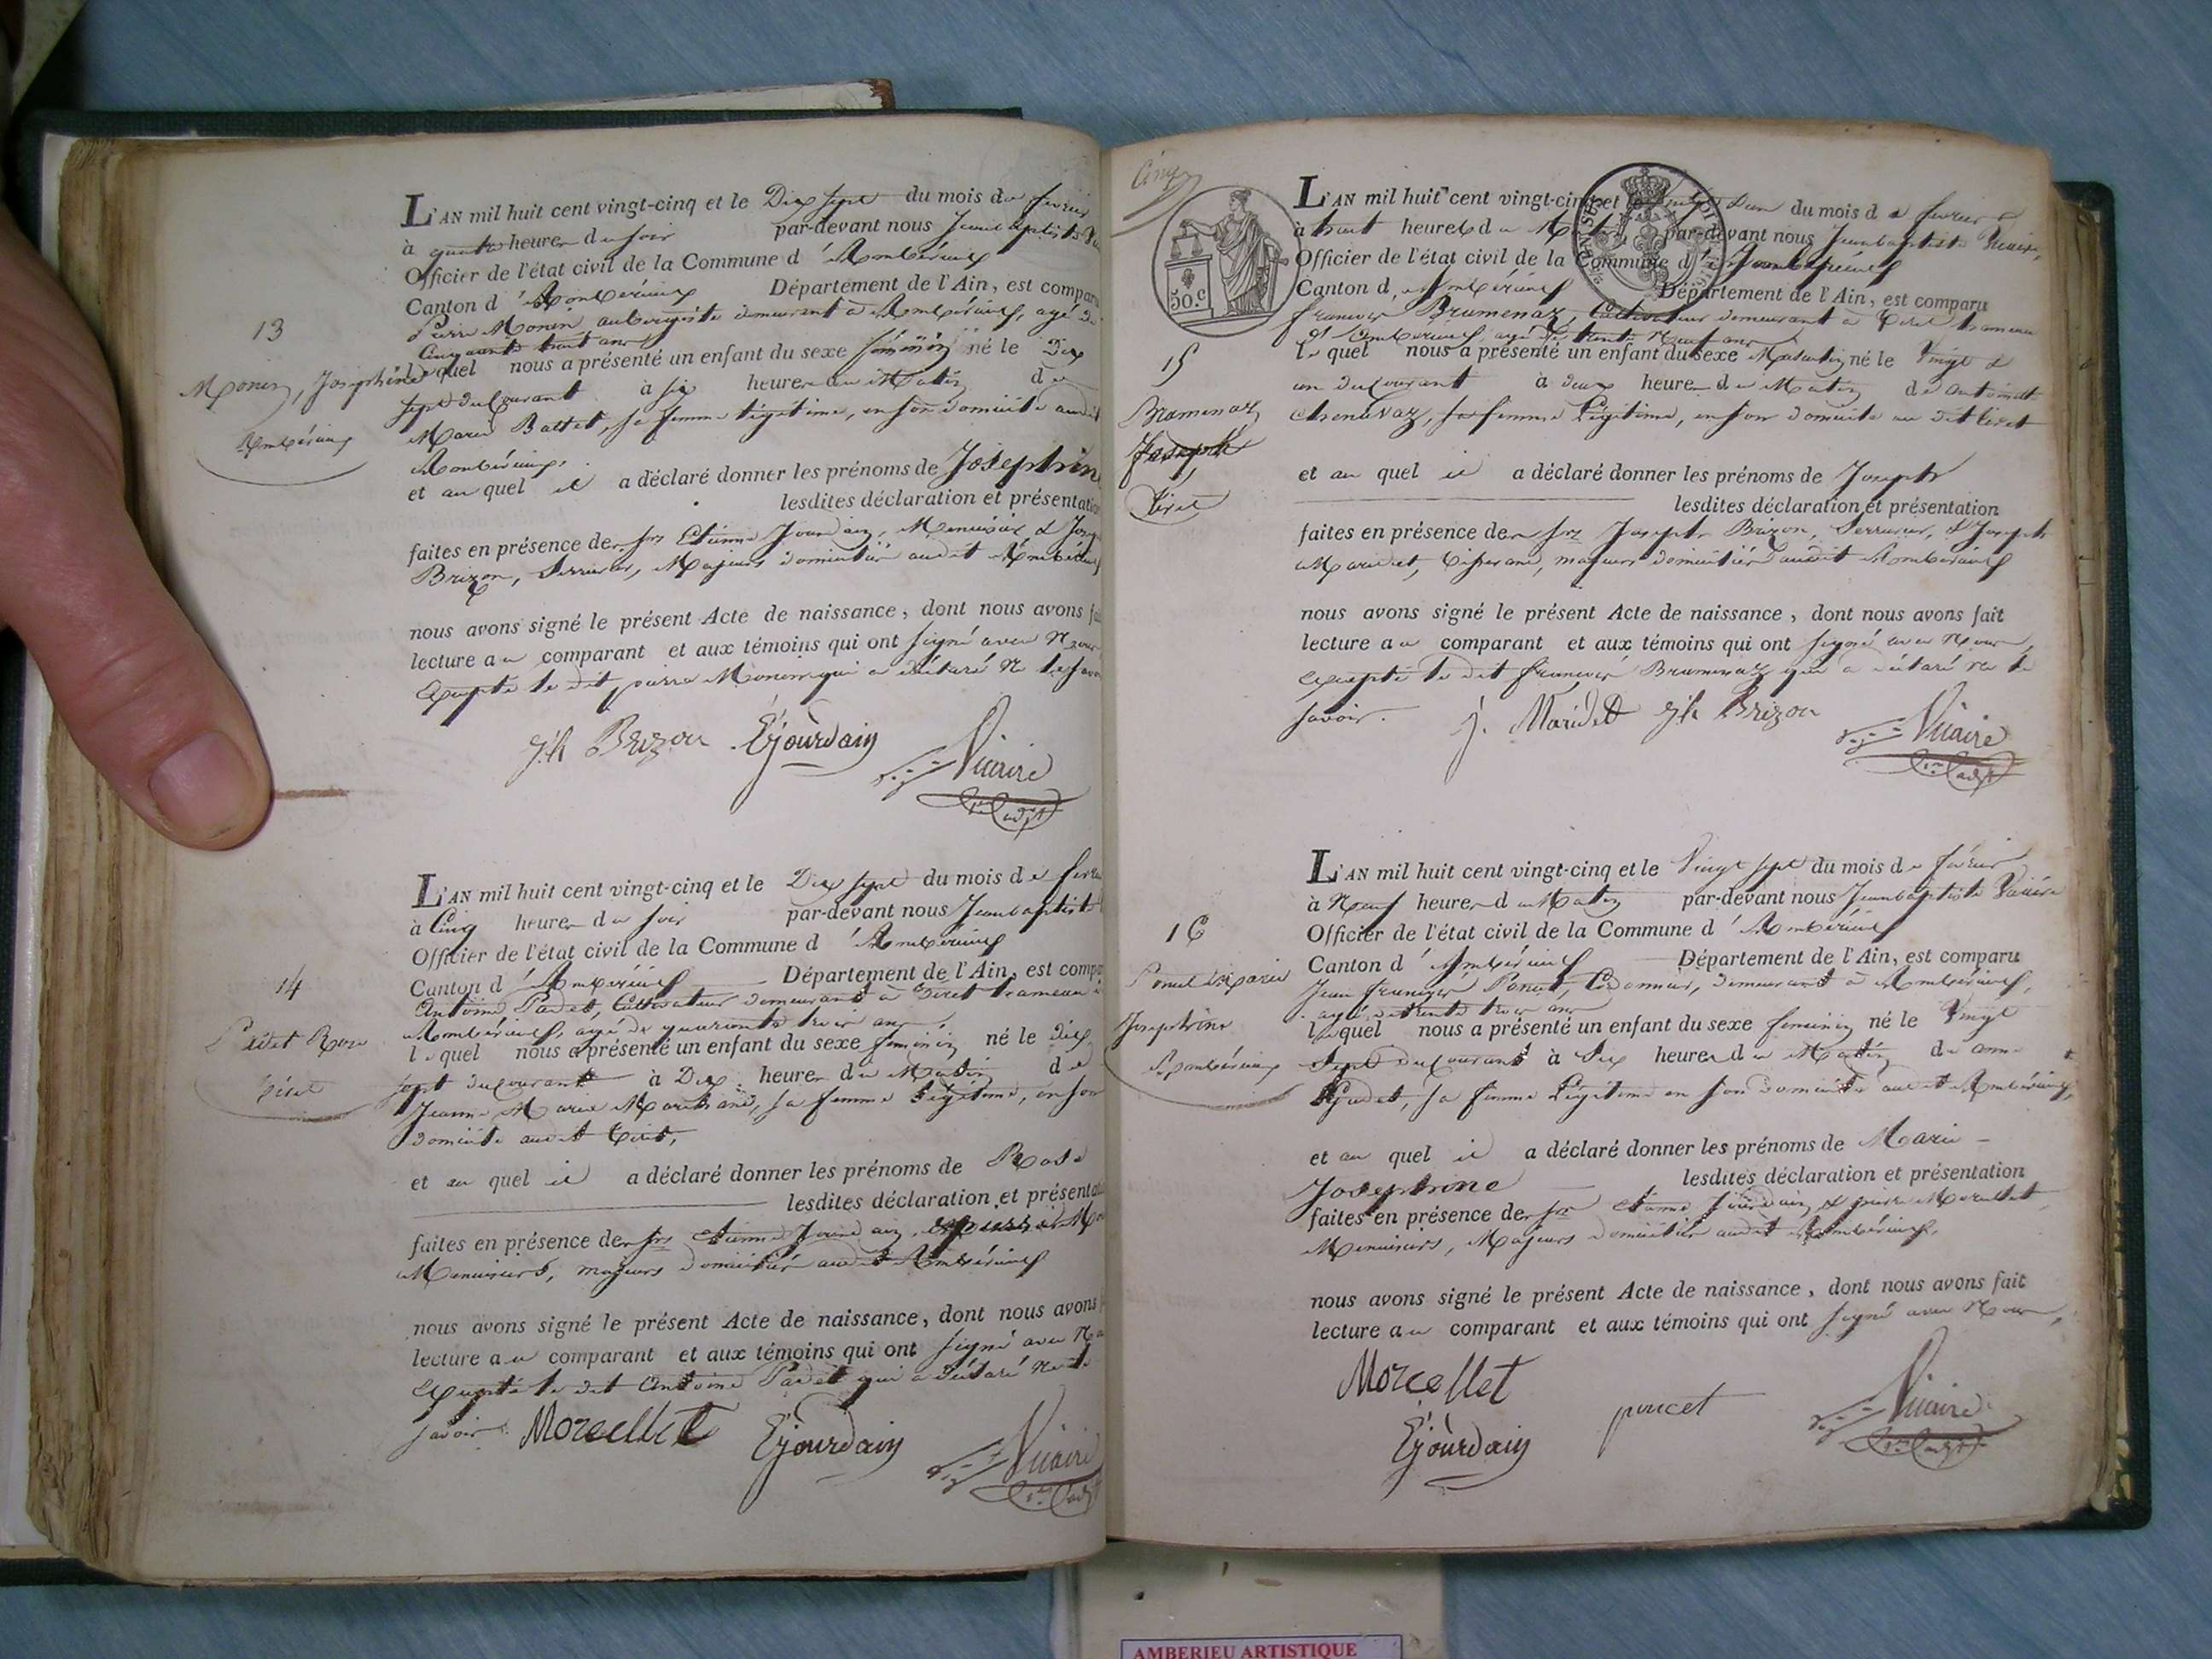 13
Monin, Josephine
Ambérieux
L'AN mil huit cent vingt-cinq et le Dix sept du mois de fevrier
à quatre heures du soir par-devant nous Jeanbaptiste
Officier de l'état civil de la Commune d'Ambérieux
Canton d'Ambérieux Département de l'Ain, est comparu
Pierre Monin aubergiste demeurant à Ambérieux, agé de
Cinquante huit ans
lequel nous a présenté un enfant du sexe féminin né le Dix
sept du Courant à six heures du Matin de
Marie Battet, sa femme légitime, en son domicile audit
Ambérieux.
et au quel il a déclaré donner les prénoms de Josephine
lesdites déclaration et présentation
faites en présence des srs Etienne Jourdain, Menuisier & Joseph
Brizon, Serrurier, Majeurs domiciliés audit Ambérieux
nous avons signé le présent Acte de naissance, dont nous avons fait
lecture au comparant et aux témoins qui ont signé avec Nous
Excepté le dit pierre Monin qui a déclaré Ne le savoir
Jh Brizon Ejourdain Vicaire
14
Padet Rose
Tiret
L'AN mil huit cent vingt-cinq et le Dix sept du mois de fevrier
à Cinq heures du soir par-devant nous Jeanbaptiste
Officier de l'état civil de la Commune d'Ambérieux
Canton d'Ambérieux Département de l'Ain, est comparu
Antoine Padet, Cultivateur demeurant à Tiret hameau
Ambérieux, agé de quarante trois ans
lequel nous a présenté un enfant du sexe féminin né le dix
sept du courant à Dix heures du Matin de
Jeanne Marie Marchand, sa femme légitime, en son
domicile audit Tiret,
et au quel il a déclaré donner les prénoms de Rose
lesdites déclaration et présentation
faites en présence des srs Etienne Jourdain, & pierre
Menuisiers, majeurs domiciliés audit Ambérieux
nous avons signé le présent Acte de naissance, dont nous avons
lecture au comparant et aux témoins qui ont signé avec
Excepté le dit Antoine Padet qui a déclaré Ne le
savoir. Morcellet Ejourdain Vicaire
50.c
15
Bramenaz
Joseph
Tiret
L'AN mil huit cent vingt-cinq et le vingt un du mois de fevrier
à huit heures du Matin par-devant nous Jeanbaptiste Vicaire,
Officier de l'état civil de la Commune d'Ambérieux
Canton d'Ambérieux Département de l'Ain, est comparu
francois Bramenaz, Cultivateur demeurant à Tiret hameau
d'Ambérieux agé de trente Neuf ans
lequel nous a présenté un enfant du sexe Masculin né le Vingt &
un du Courant à deux heures du Matin de antoinette
Chenavaz, sa femme Légitime, en son domicile au dit tiret
et au quel il a déclaré donner les prénoms de Joseph
lesdites déclaration et présentation
faites en présence des srs Joseph Brizon, Serrurier, & Joseph
Maridet, Tisserand, majeurs domiciliés audit Ambérieux
nous avons signé le présent Acte de naissance, dont nous avons fait
lecture au comparant et aux témoins qui ont signé avec Nous,
excepté le dit francois Bramenaz qui a déclaré ne le
savoir. J. Maridet Jh Brizon Vicaire
16
Poncet Marie
Josephine
Ambérieux
L'AN mil huit cent vingt-cinq et le Vingt sept du mois de février
à Neuf heures du Matin par-devant nous Jeanbaptiste Vicaire
Officier de l'état civil de la Commune d'Ambérieux
Canton d'Ambérieux Département de l'Ain, est comparu
Jean françois Poncet, Cordonnier, demeurant à Ambérieux,
agé de trente trois ans
lequel nous a présenté un enfant du sexe feminin né le Vingt
Sept du Courant à Six heures du Matin de anne
sa femme Légitime en son domicile audit Ambérieux,
et au quel il a déclaré donner les prénoms de Marie
Josephine lesdites déclaration et présentation
faites en présence des srs Etienne Jourdain & pierre Morcellet,
Menuisiers, Majeurs domiciliés audit Ambérieux,
nous avons signé le présent Acte de naissance, dont nous avons fait
lecture au comparant et aux témoins qui ont signé avec Nous,
Morcellet
Ejourdain poncet Vicaire
AMBERIEU ARTISTIQUE